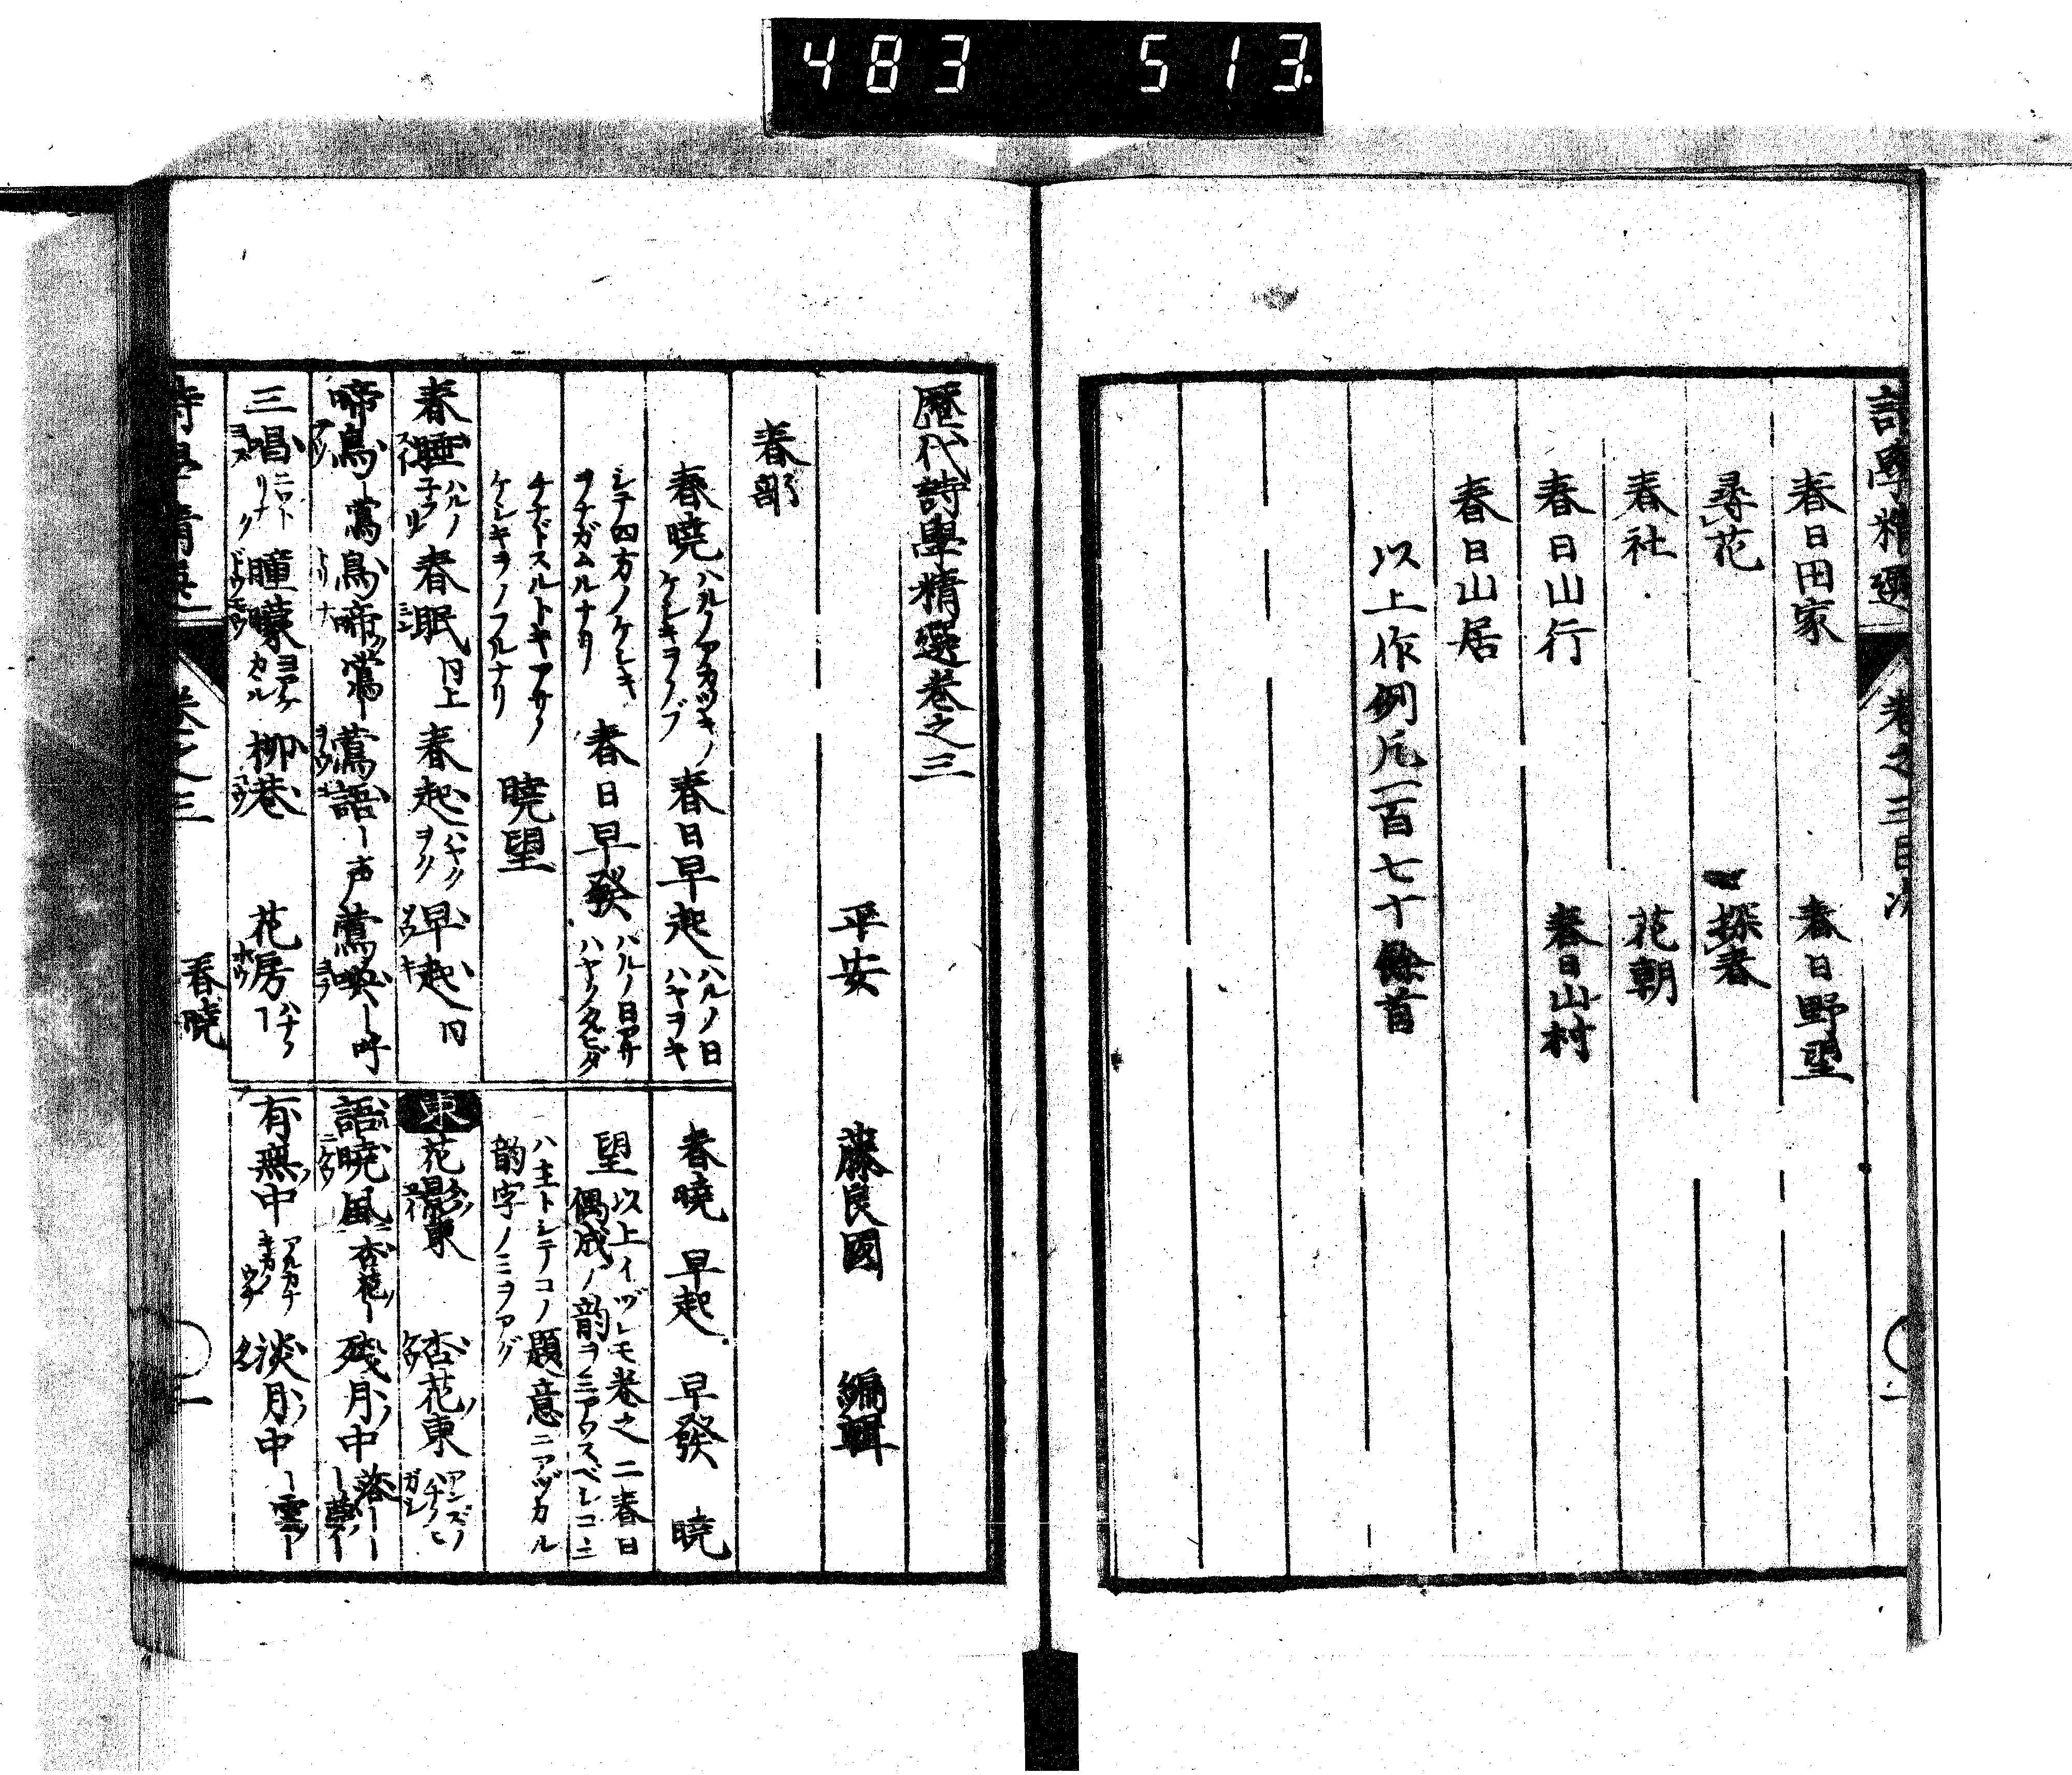 483 513.
詩學精選 卷之三目次
春日田家 春日野望
尋花 探春
春社 花朝
春日山行 春日山村
春日山居
以上作例凡一百七十餘首
歷代詩學精選卷之三
平安 藤良國 編輯
春部
春曉 ハルノアカツキノケシキヲノブ 春日早起 ハルノ日ハヤヲキ
シテ四方ノケシキヲナガムルナリ 春日早發 ハルノ日アサハヤクタビダ
チナドスルトキアサノケシキヲノブルナリ 曉望
春睡 ハルノ子フリ 春眠 同上 春起 ハヤクヲク 早起 同
啼鳥 ー鶯 鳥啼 鶯ー 鶯語 ー声 鶯喚 ー呼
三唱 瞳曚 柳巷 花房
春曉 早起 早發 曉
望 以上イヅレモ卷之二春日偶成ノ韵ヲ三アワスベシコヽニ
ハ主トシテコノ題意ニアヅカル韵字ノミヲアグ
東 花影東 杏花東 アンズノハナノヒガシ
語曉風 杏花ー 殘月中 落ーー
有無中 淡月中 ー雲ー
詩學精選 卷之三 春曉 一